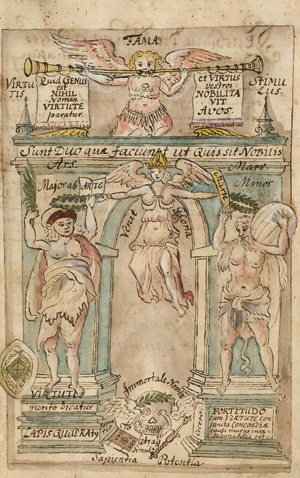 FAMA
VIRTU
TIS.
Quid GENUS
est
NIHIL
Nomen
VIRTUTE
paratur.
et VIRTUS
vestros
NOBILITA
VIT
AVOS.
STIMU
LUS.
SUNT DUO quæ faciunt ut Quis sit NOBILIS
Ars.
Mars.
Major ab ARTE
Minor
Venit
Gloria
Immortale Nomen
VIRTUTIS
merito Dicatur
LAPIS QUADRATꝰ
FORTITUDO
cum VIRTUTE con
juncta CONCORDIÆ
Sapientia
Potentia